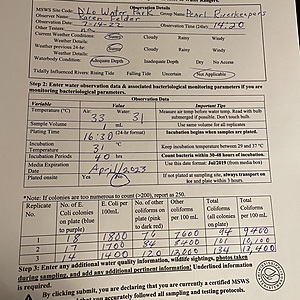 MSWS Site Code: D Lo Water Park Group Name: Pearl Riverkeepers
Observer Name: Karen Felder
Date: 7-14-22 Observation Time (24hr): 14:20
Other Testers: na
Current Weather Condition: Sunny Cloudy Rainy Windy
Weather Details:
Weather previous 24-hr: Sunny Cloudy Rainy Windy
Weather Details:
Waterbody Condition: Adequate Depth Inadequate Depth Dry No Access
Tidally Influenced Rivers: Rising Tide Falling Tide Uncertain Not Applicable
Step 2: Enter water observation data & associated bacteriological monitoring parameters if you are
monitoring bacteriological parameters.
Observation Data
Variable Value Important Tips
Temperature (°C) Air: 33 Water: 31 Measure air temp before water temp. Read with bulb
submerged if possible. Don't touch bulb.
Sample Volume mL Use same volume for all replicates
Plating Time 16:30 (24-hr format) Incubation begins when samples are plated.
Incubation
Temperature 31 °C Keep incubation temperature between 29 and 37 °C
Incubation Periods 40 hrs Count bacteria within 30-48 hours of incubation.
Media Expiration
Date April/2023 Use this date format: Jul/2019 (from media box)
Plated onsite Yes No If not plated at sampling site, always transport on
ice and plate within 6 hours.
*Note: If colonies are too numerous to count (>200), report as 250.
Replicate
No. No. of E.
Coli colonies
on plate (blue
to purple) E. Coli per
100mL No. of other
coliforms on
plate (pink
to dark red) Other
coliforms
per 100mL Total
Coliforms
(all colonies
on plate) Total
Coliforms
per 100mL
1 18 1800 76 7600 94 9400
2 17 1700 84 8400 101 10,100
3 14 1400 120 12,000 134 13,400
Step 3: Enter any additional water quality information, wildlife sightings, photos taken
during sampling, and add any additional pertinent information! Underlined information
is required.
By clicking submit, you are declaring that you are currently a certified MSWS
that you accurately followed all sampling and testing protocols.